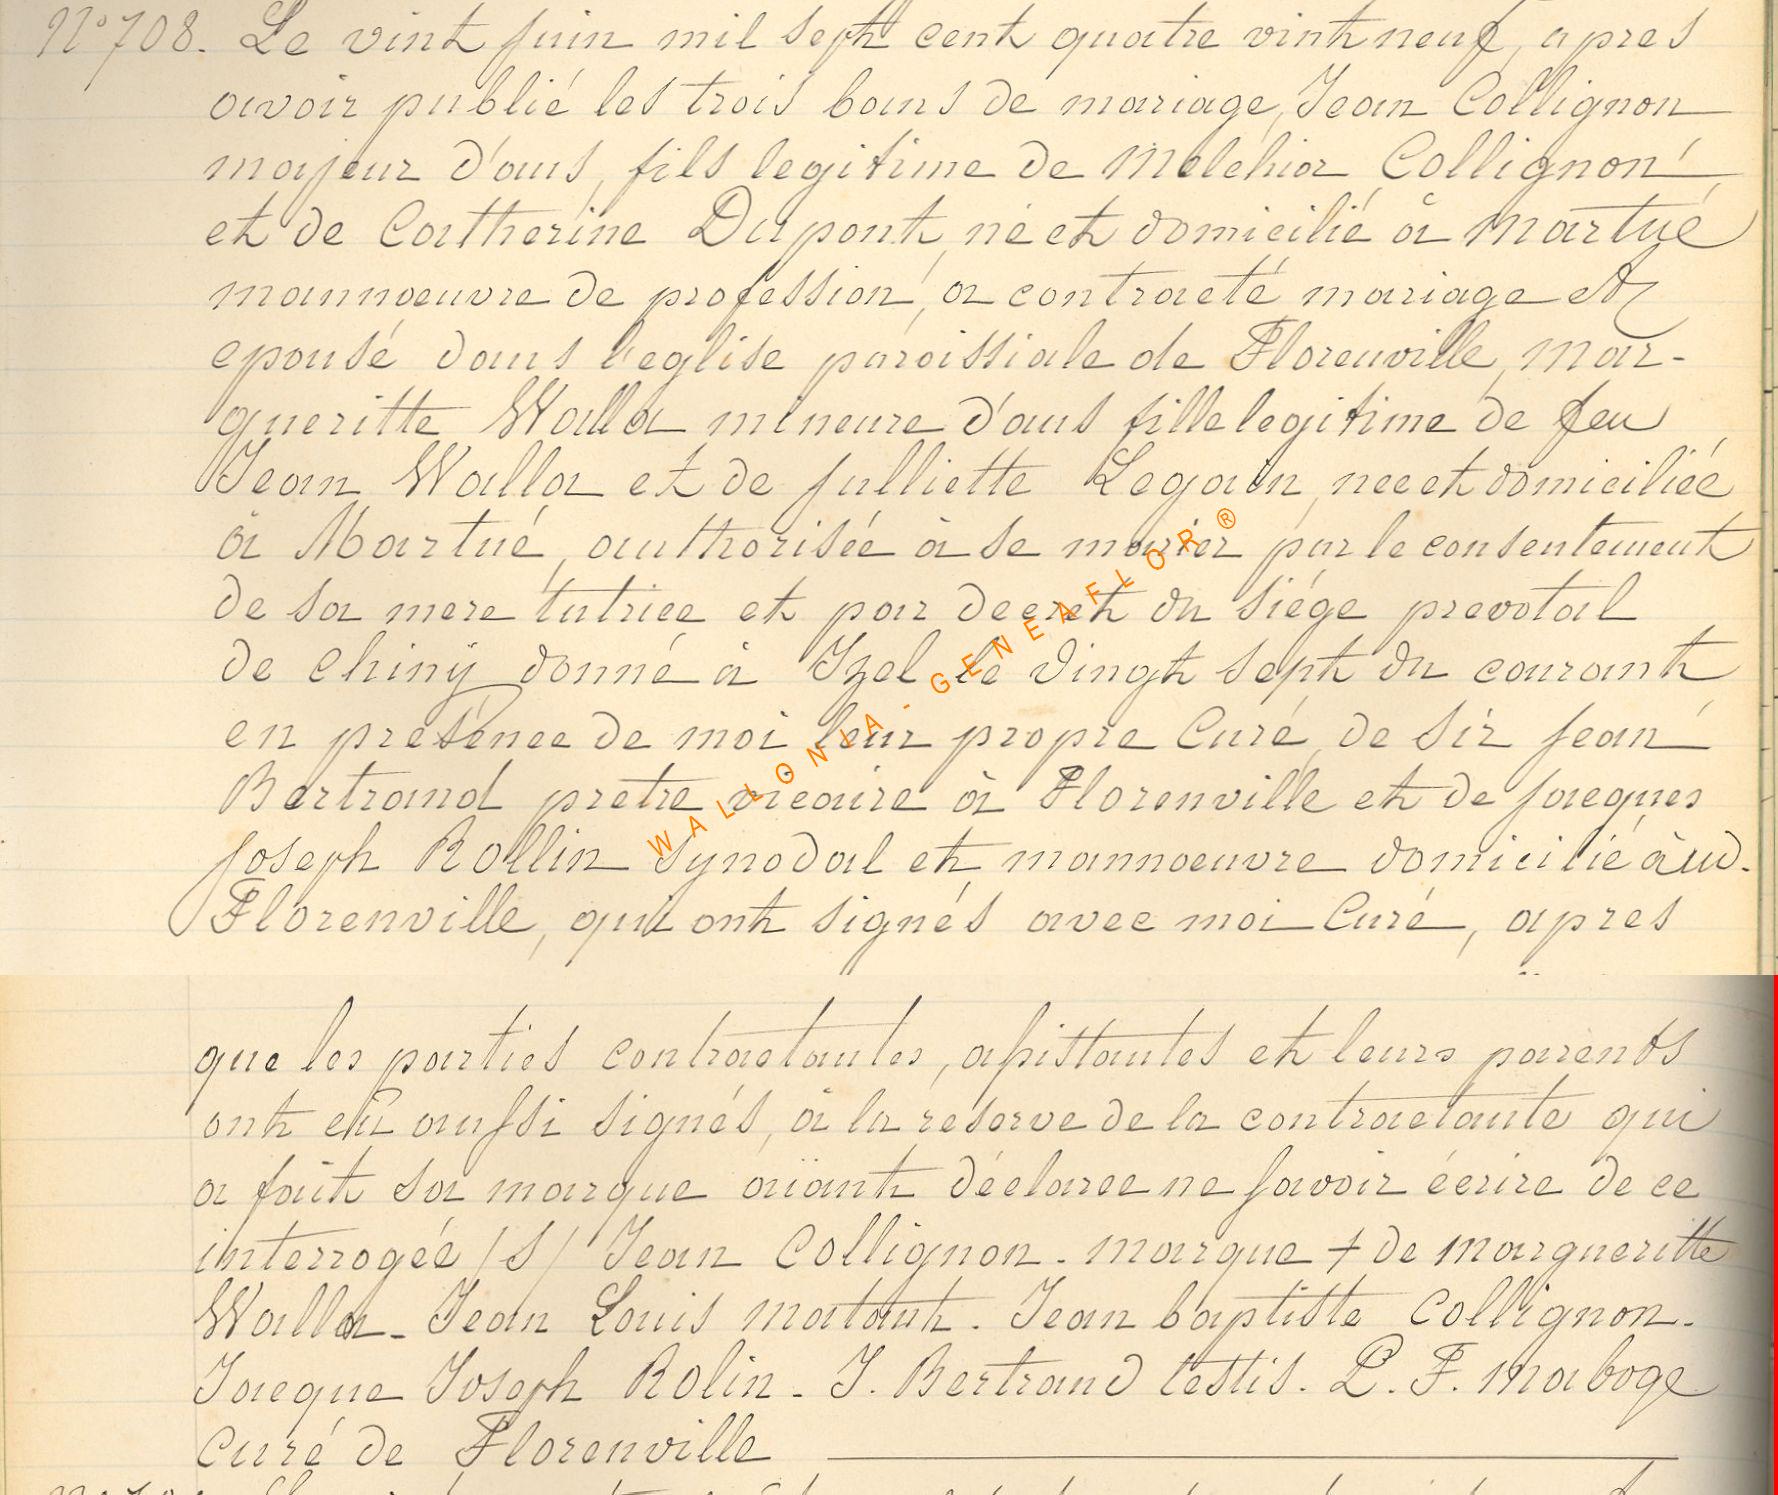 N° 708. Le vint juin mil sept cent quatre vint neuf, apres
avoir publié les trois bans de mariage, Jean Collignon
majeur d'ans, fils legitime de Melchior Collignon
et de Catherine Dupont, né et domicilié à Martué
mannoeuvre de profession, a contracté mariage et
epousé dans l'eglise paroissiale de Florenville, Mar-
gueritte Walla mineure d'ans fille legitime de feu
Jean Walla et de Julliette Legain, nee et domiciliée
à Martué, authorisée à se marier par le consentement
de sa mere tutrice et par decret du siége prevotal
de Chinÿ donné à Izel le vingt sept du courant
en presence de moi leur propre Curé, de Sir Jean
Bertrand pretre vicaire à Florenville et de Jacques
Joseph Rollin Synodal et mannoeuvre domicilié àud.
Florenville, qui ont signés avec moi Curé, apres
WALLONIA - GENEAFLOR ®
que les parties contractantes, assistantes et leurs parents
ont eu aussi signés, à la reserve de la contractante qui
a fait sa marque aïant déclaree ne savoir écrire de ce
interrogée /S/ Jean Collignon - marque + de Margueritte
Walla - Jean Louis Matant - Jean baptiste Collignon -
Jacque Joseph Rolin - J. Bertrand testis. P. F. Maboge
Curé de Florenville